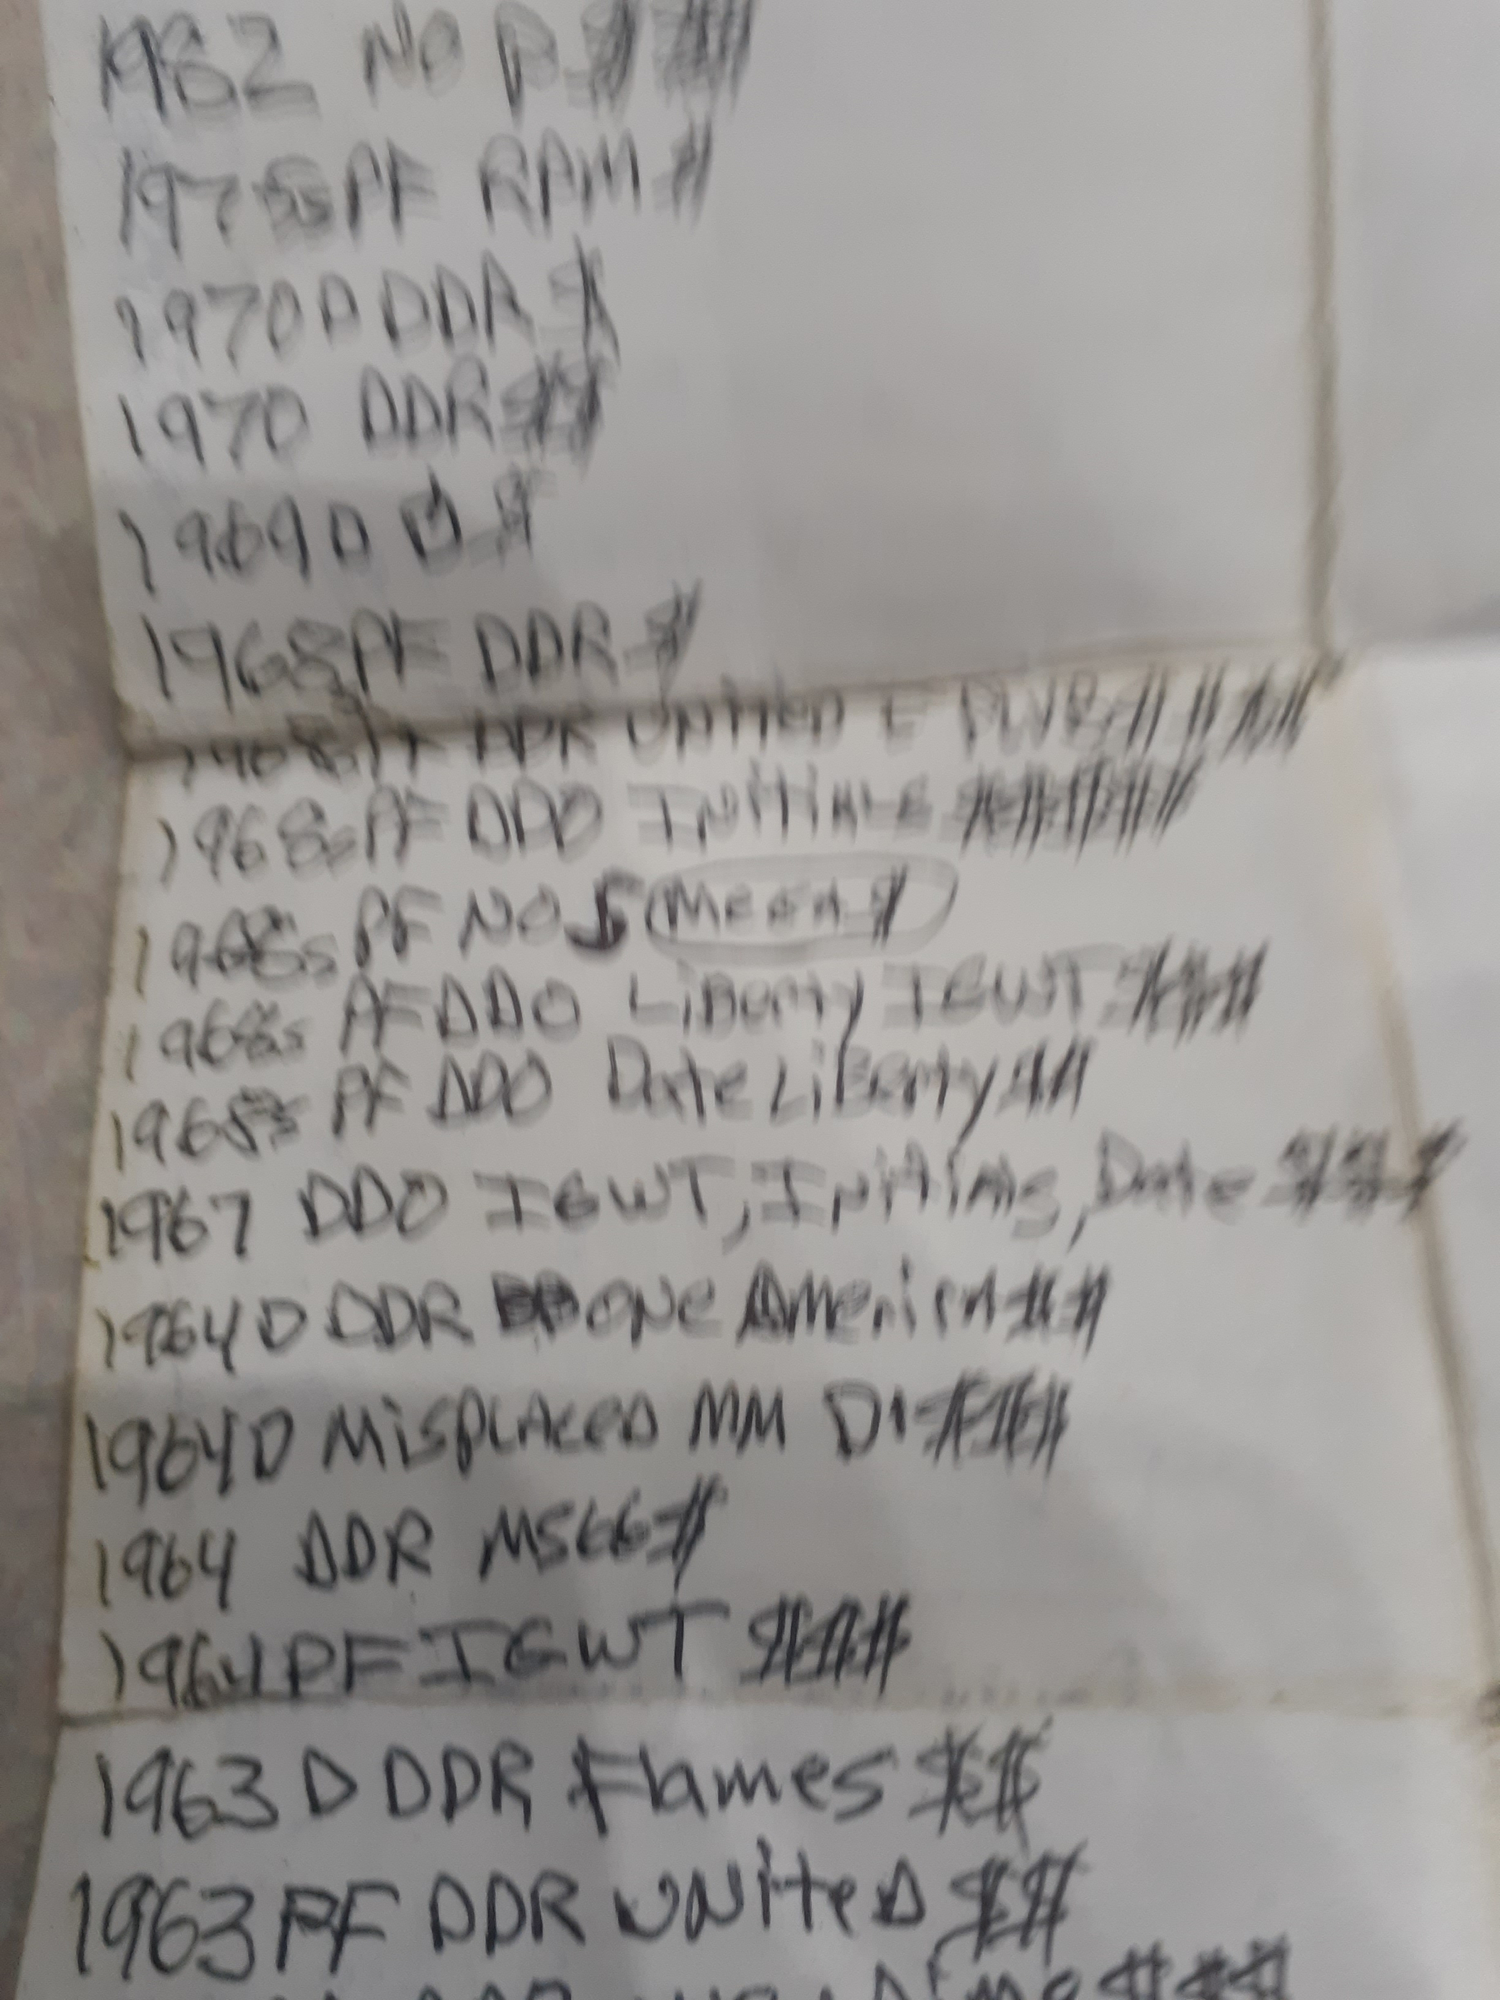 1982 NO P $ $$
1975s PF RPM $
1970 D DDR $
1970 DDR $$
1969 D D $
1968s PF DDR $
1968s PF DDR UNITED E PLUB $$$$
1968s PF DDO INitiALS $$$$$
1968s PF NO S (Mega $)
1968s PF DDO LiBerty IGWT $$$
1968s PF DDO Date LiBerty $$
1967 DDO IGWT, INitials, Date $$$
1964 D DDR ONe America $$
1964 D MispLAceD MM D1 $$$
1964 DDR MS66 $
1964 PF IGWT $$$
1963 D DDR Flames $$
1963 PF DDR UNiteD $$
DDR Dime $$$